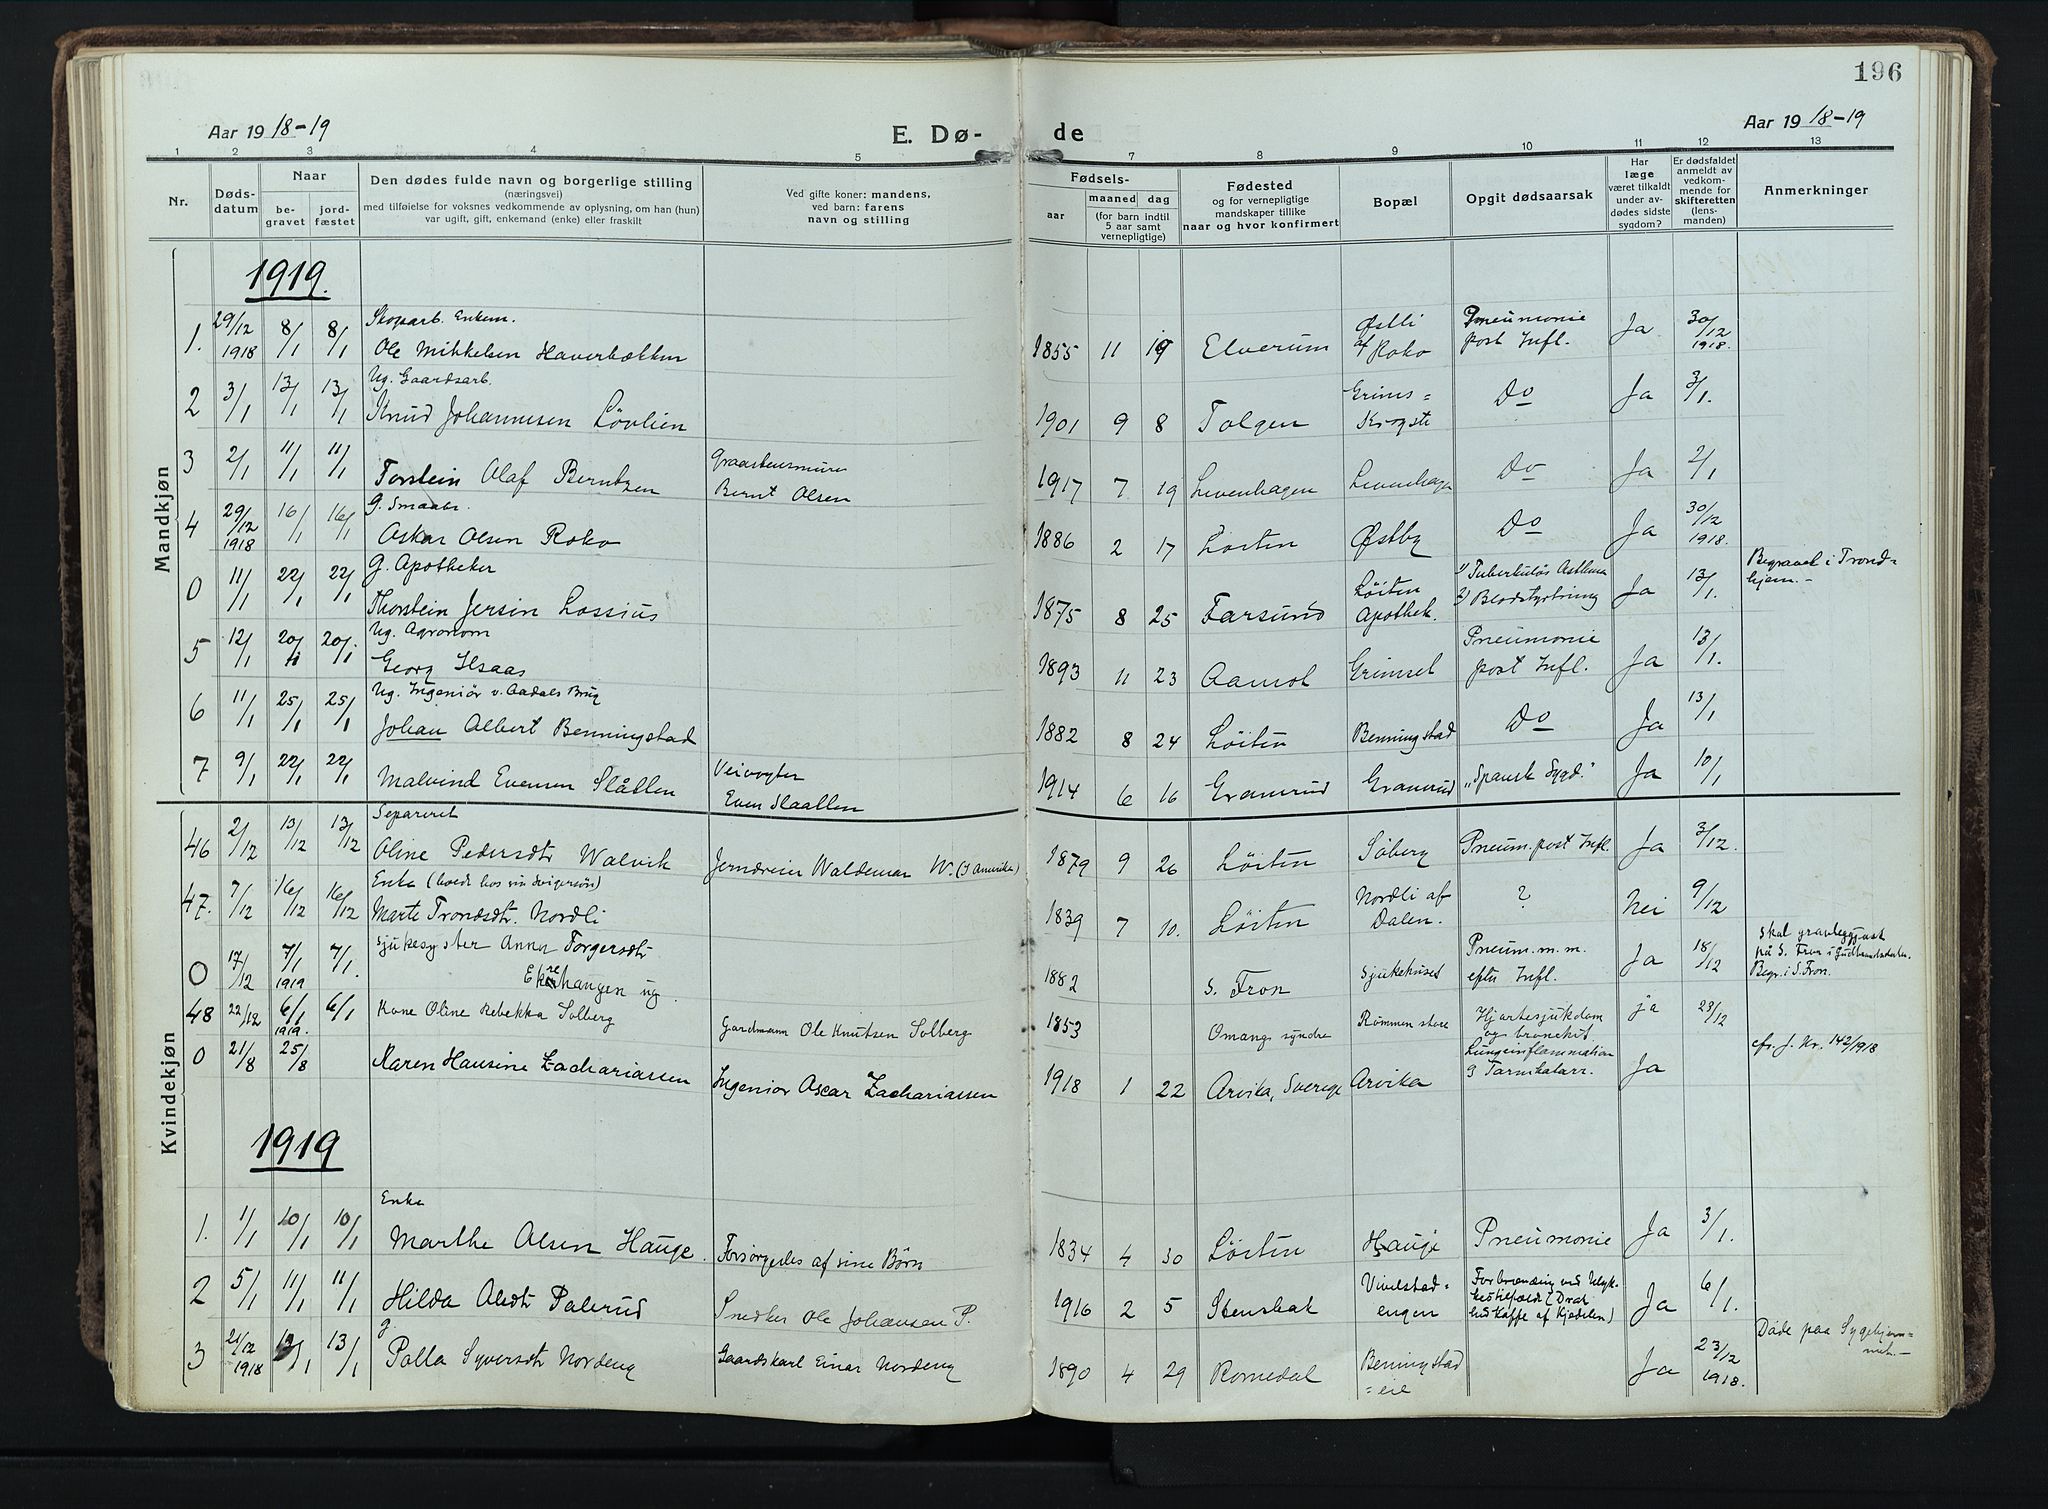 196
Aar 1918-19
E. Dø-
de
Aar 1918-19
1 2 3 4 5 7 8 9 10 11 12 13
Nr.
Døds-
datum
Naar
be-
gravet
jord-
fæstet
Den dødes fulde navn og borgerlige stilling
(næringsvei)
med tilføielse for voksnes vedkommende av oplysning, om han (hun)
var ugift, gift, enkemand (enke) eller fraskilt
Ved gifte koner: mandens,
ved barn: farens
navn og stilling
Fødsels-
aar
maaned dag
(for barn indtil
5 aar samt
vernepligtige)
Fødested
og for vernepligtige
mandskaper tillike
naar og hvor konfirmert
Bopæl
Opgit dødsaarsak
Har
læge
været tilkaldt
under av-
dødes sidste
sygdom?
Er dødsfaldet
anmeldt av
vedkom-
mende for
skifteretten
(lens-
manden)
Anmerkninger
Mandkjøn
1919.
1. 29/12 1918 8/1 8/1 Skogarb. Enkem.
Ole Mikkelsen Haverbakken 1855 11 19 Elverum Østli af Roko Pneumonie post Infl. Ja 30/12 1918.
2 3/1 13/1 13/1 Ug. Gaardsarb.
Knud Johannesen Løvlien 1901 9 8 Tolgen Grims= Do Ja 3/1.
3 2/1 11/1 11/1 Torstein Olaf Berntzen
Bernt Olsen 1917 7 19 Levenhagen Levenhagen Do Ja 2/1
4 29/12 1918 16/1 16/1 G. Smaabr.
Oskar Olsen Roko 1886 2 17 Løiten Østby Do Ja 30/12 1918.
0 11/1 22/1 22/1 G. Apotheker
Thorstein Jersin Lossius 1875 8 25 Farsund Løiten Apothek. 1) Tuberkuløs Asthma 2) Blodstyrtning Ja 13/1. Begravet i Trond=hjem.-
5 12/1 20/1 20/1. Ug. Agronom
Georg Ilsaas 1893 11 23 Aamot Grimset Pneumonie post Infl. Ja 13/1.
6 11/1 25/1 25/1 Ug. Ingeniør v. Aadals Brug
Johan Albert Benningstad 1882 8 24 Løiten Benningstad Do Ja 13/1
7 9/1 22/1 22/1 Malvind Evensen Slåtten Veivogter
Even Slaatten 1914 6 16 Gramrud Gramrud "Spansk Sygd." Ja 10/1
Kvindekjøn
46 2/12 13/12 13/12 Separeret
Oline Pedersdtr Walvik Jerndreier Waldemar W. (I Amerika) 1879 9 26 Løiten Søberg Pneum. post Infl. Ja 3/12.
47. 7/12 16/12 16/12 Enke (boede hos sin svigersøn)
Marte Trondsdtr. Nordli 1839 7 10. Løiten Nordli af Dalen. ? Nei 9/12
0 17/12 7/1 1919 7/1. Sjukesyster Anna Torgersdtr
Ekrehangen ug. 1882 S. Fron Sjukehuset Pneum. m. m. efter Infl. Ja 18/12 Skal på S. Fron i Gudbrandsdalen. Begr. i S. Fron.
48 22/12 6/1 1919. 6/1 Kone Oline Rebekka Solberg Gardmann Ole Knutsen Solberg 1853 Omang syndre Rømmen store Hjartesjukdom og bronchit. ja 23/12
0 21/8 25/8 Karen Hansine Zachariassen Ingeniør Oscar Zachariassen 1918 1 22 Arvika, Sverige Arvika Lungeinflammation og Tarmkatarr. Ja cfr. J. Nr. 142/1918
1919
1. 1/1 10/1 10/1 Enke
Marthe Olsen Hauge. Forsørgedes af sine Børn 1834 4 30 Løiten Hauge Pneumonie Ja 3/1.
2 5/1 11/1 11/1 Hilda Olsdtr Palerud Snedker Ole Johansen P. 1916 2 5 Stensbak Vivelstad-engen Forbrænding ved Ulyk-kestilfælde (Drak hed Kaffe af Kjedelen) Ja 6/1.
3 21/12 1918 13/1 13/1 g.
Palla Syversdtr Nordeng Gaardskarl Einar Nordeng 1890 4 29 Romedal Benningstad =eie Ja 23/12 1918. Døde paa Sygehjem=met.-